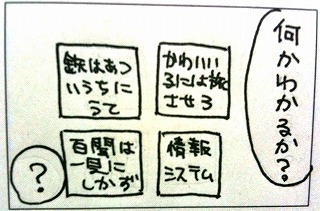 何かわかるか?
鉄はあつ
いうちに
うて
かわいい
るには旅
させろ
百聞は
一見に
しかず
情報
システム
?